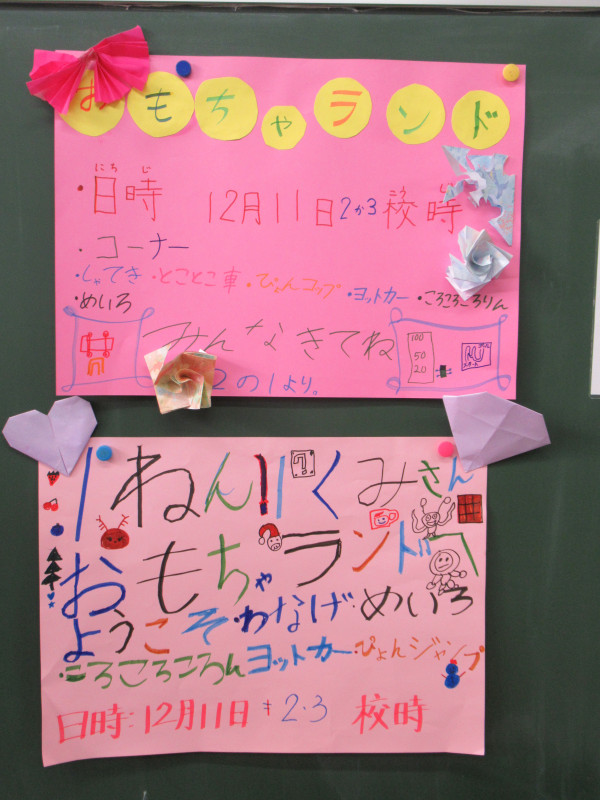 おもちゃランド
にちじ
・日時 12月11日2か3校時
こうじ
・コーナー
・しゃてき・とことこ車・ぴょんコップ・ヨットカー・ころころころりん
・めいろ
みんなきてね
100
50
20
2の1より。
1ねん1くみさん
?
おもちゃランドへ
ようこそ・わなげ・めいろ
・ころころころん ヨットカー・ぴょんジャンプ
日時:12月11日 2・3 校時